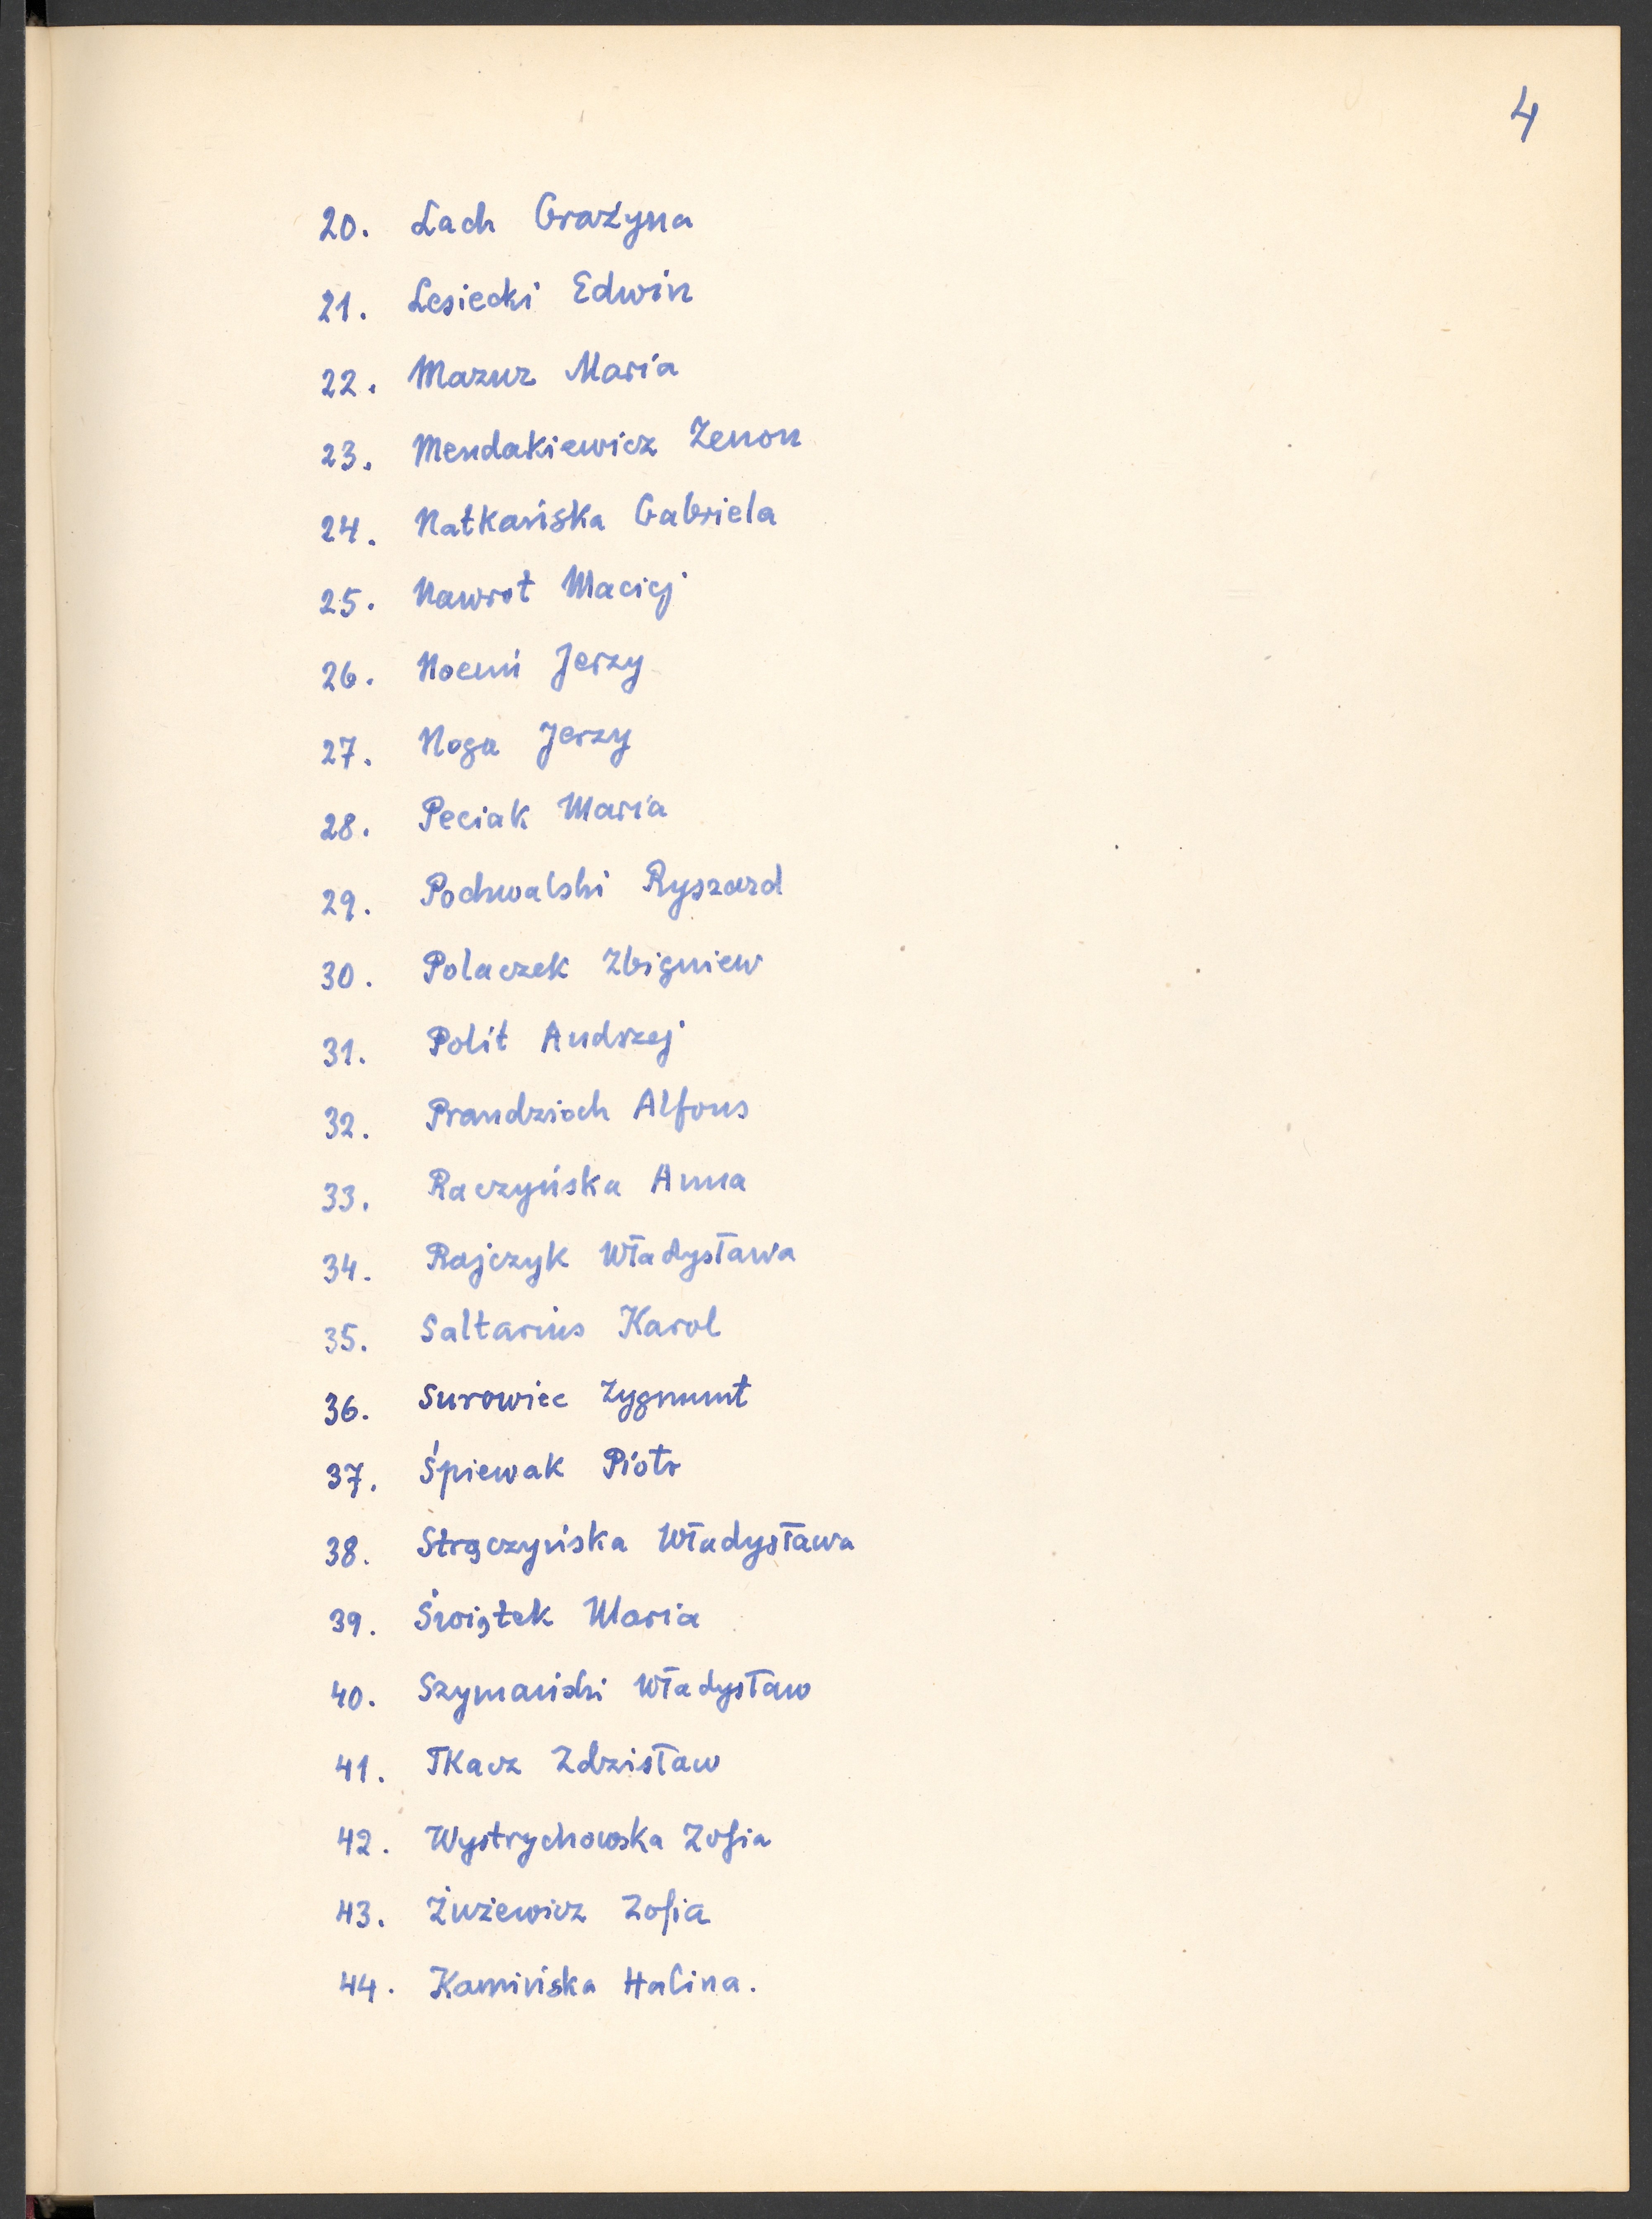 4
20. Lach Grażyna
21. Lesiecki Edwin
22. Mazur Maria
23. Mendakiewicz Zenon
24. Natkańska Gabriela
25. Nawrot Maciej
26. Noemi Jerzy
27. Noga Jerzy
28. Peciak Maria
29. Pochwalski Ryszard
30. Polaczek Zbigniew
31. Polit Andrzej
32. Prandzioch Alfons
33. Raczyńska Anna
34. Rajczyk Władysława
35. Saltarius Karol
36. Surowiec Zygmunt
37. Śpiewak Piotr
38. Strączyńska Władysława
39. Świątek Maria
40. Szymański Władysław
41. Tkacz Zdzisław
42. Wystrychowska Zofia
43. Żużewicz Zofia
44. Kamińska Halina.